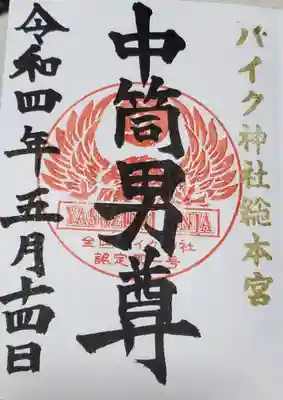 バイク神社総本宮
中筒男尊
令和四年五月十四日
YASUZUMI JINJA
全国バイク神社
認定第一号